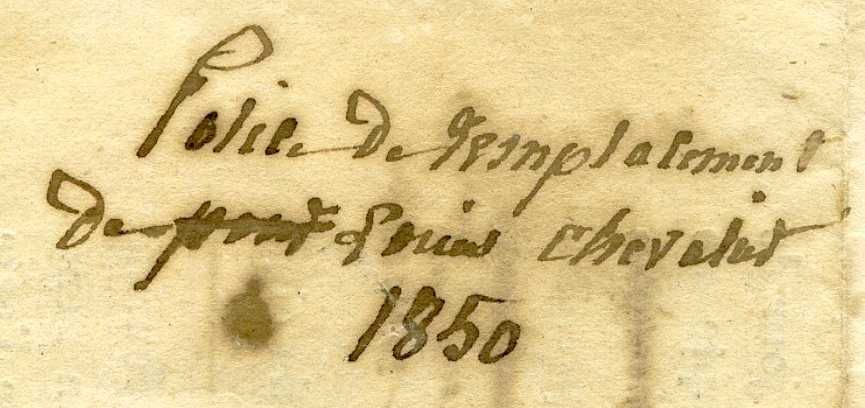 Police de remplacement
de pour Louis chevalier
1850